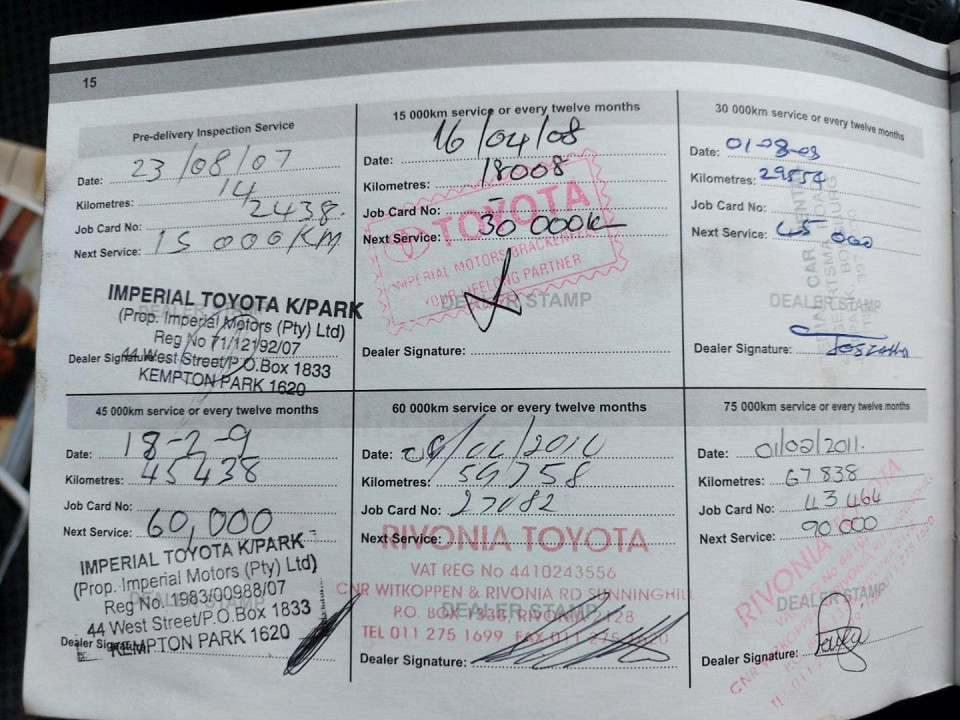 15
Pre-delivery Inspection Service
Date: 23/08/07
Kilometres: 14
Job Card No: 2438.
Next Service: 15 000KM
DEALER STAMP
IMPERIAL TOYOTA K/PARK
(Prop. Imperial Motors (Pty) Ltd)
Reg No 71/12192/07
44 West Street/P.O.Box 1833
KEMPTON PARK 1620
Dealer Signature:
15 000km service or every twelve months
Date: 16/04/08
Kilometres: 18008
Job Card No: -
Next Service: 30 000k
TOYOTA
IMPERIAL MOTORS BRACKENFELL
YOUR LIFELONG PARTNER
DEALER STAMP
Dealer Signature:
30 000km service or every twelve months
Date: 01-08-03
Kilometres: 29854
Job Card No:
Next Service: 45 000
DEALER STAMP
Dealer Signature:
45 000km service or every twelve months
Date: 18-2-9
Kilometres: 45438
Job Card No:
Next Service: 60,000
DEALER STAMP
IMPERIAL TOYOTA K/PARK
(Prop. Imperial Motors (Pty) Ltd)
Reg No. 1983/00988/07
44 West Street/P.O.Box 1833
KEMPTON PARK 1620
Dealer Signature:
60 000km service or every twelve months
Date: /2010
Kilometres: 59758
Job Card No: 27082
Next Service:
RIVONIA TOYOTA
VAT REG No 4410243556
CNR WITKOPPEN & RIVONIA RD SUNNINGHILL
P.O. BOX 1338, RIVONIA 2128
DEALER STAMP
TEL 011 275 1699 FAX 011 275
Dealer Signature:
75 000km service or every twelve months
Date: 01/02/2011.
Kilometres: 67838
Job Card No: 43464
Next Service: 90 000
RIVONIA TOYOTA
DEALER STAMP
Dealer Signature: